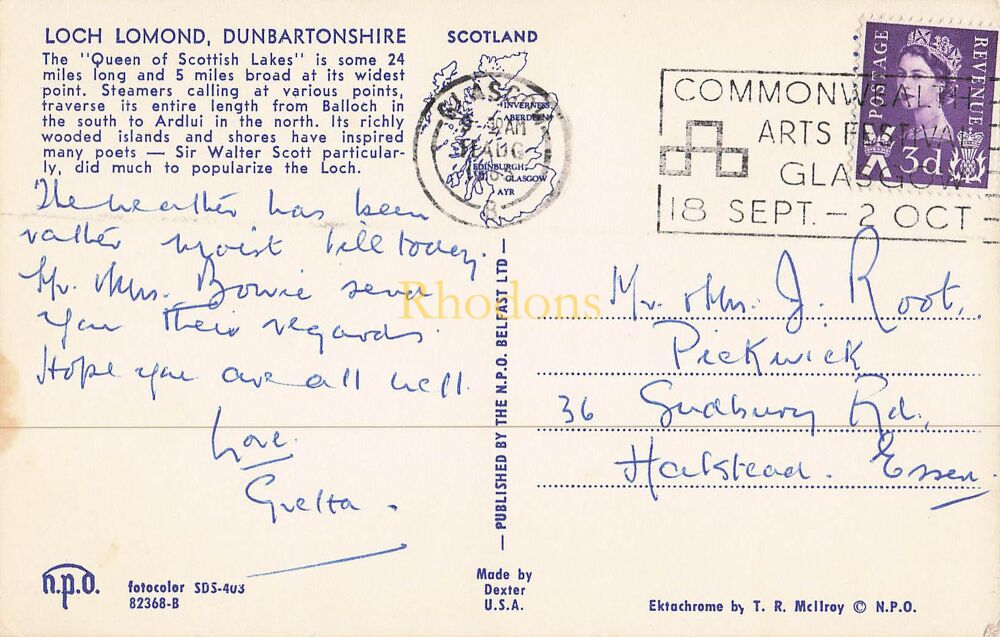 LOCH LOMOND, DUNBARTONSHIRE
The "Queen of Scottish Lakes" is some 24
miles long and 5 miles broad at its widest
point. Steamers calling at various points,
traverse its entire length from Balloch in
the south to Ardlui in the north. Its richly
wooded islands and shores have inspired
many poets — Sir Walter Scott particular-
ly, did much to popularize the Loch.
The weather has been
rather moist till today.
Mr. & Mrs. Bowie send
you their regards.
Hope you are all well.
Love.
Gretta.
n.p.o.
fotocolor SDS-403
82368-B
SCOTLAND
INVERNESS
ABERDEEN
EDINBURGH
GLASGOW
AYR
GLASGOW
AM
AUG
8
COMMONWEALTH
ARTS FESTIVAL
GLASGOW
18 SEPT. — 2 OCT
POSTAGE
REVENUE
3d
— PUBLISHED BY THE N.P.O. BELFAST LTD —
Mr. & Mrs. J. Root,
Pickwick
36 Sudbury Rd,
Halstead. Essex
Made by
Dexter
U.S.A.
Ektachrome by T. R. McIlroy © N.P.O.
Rhodons